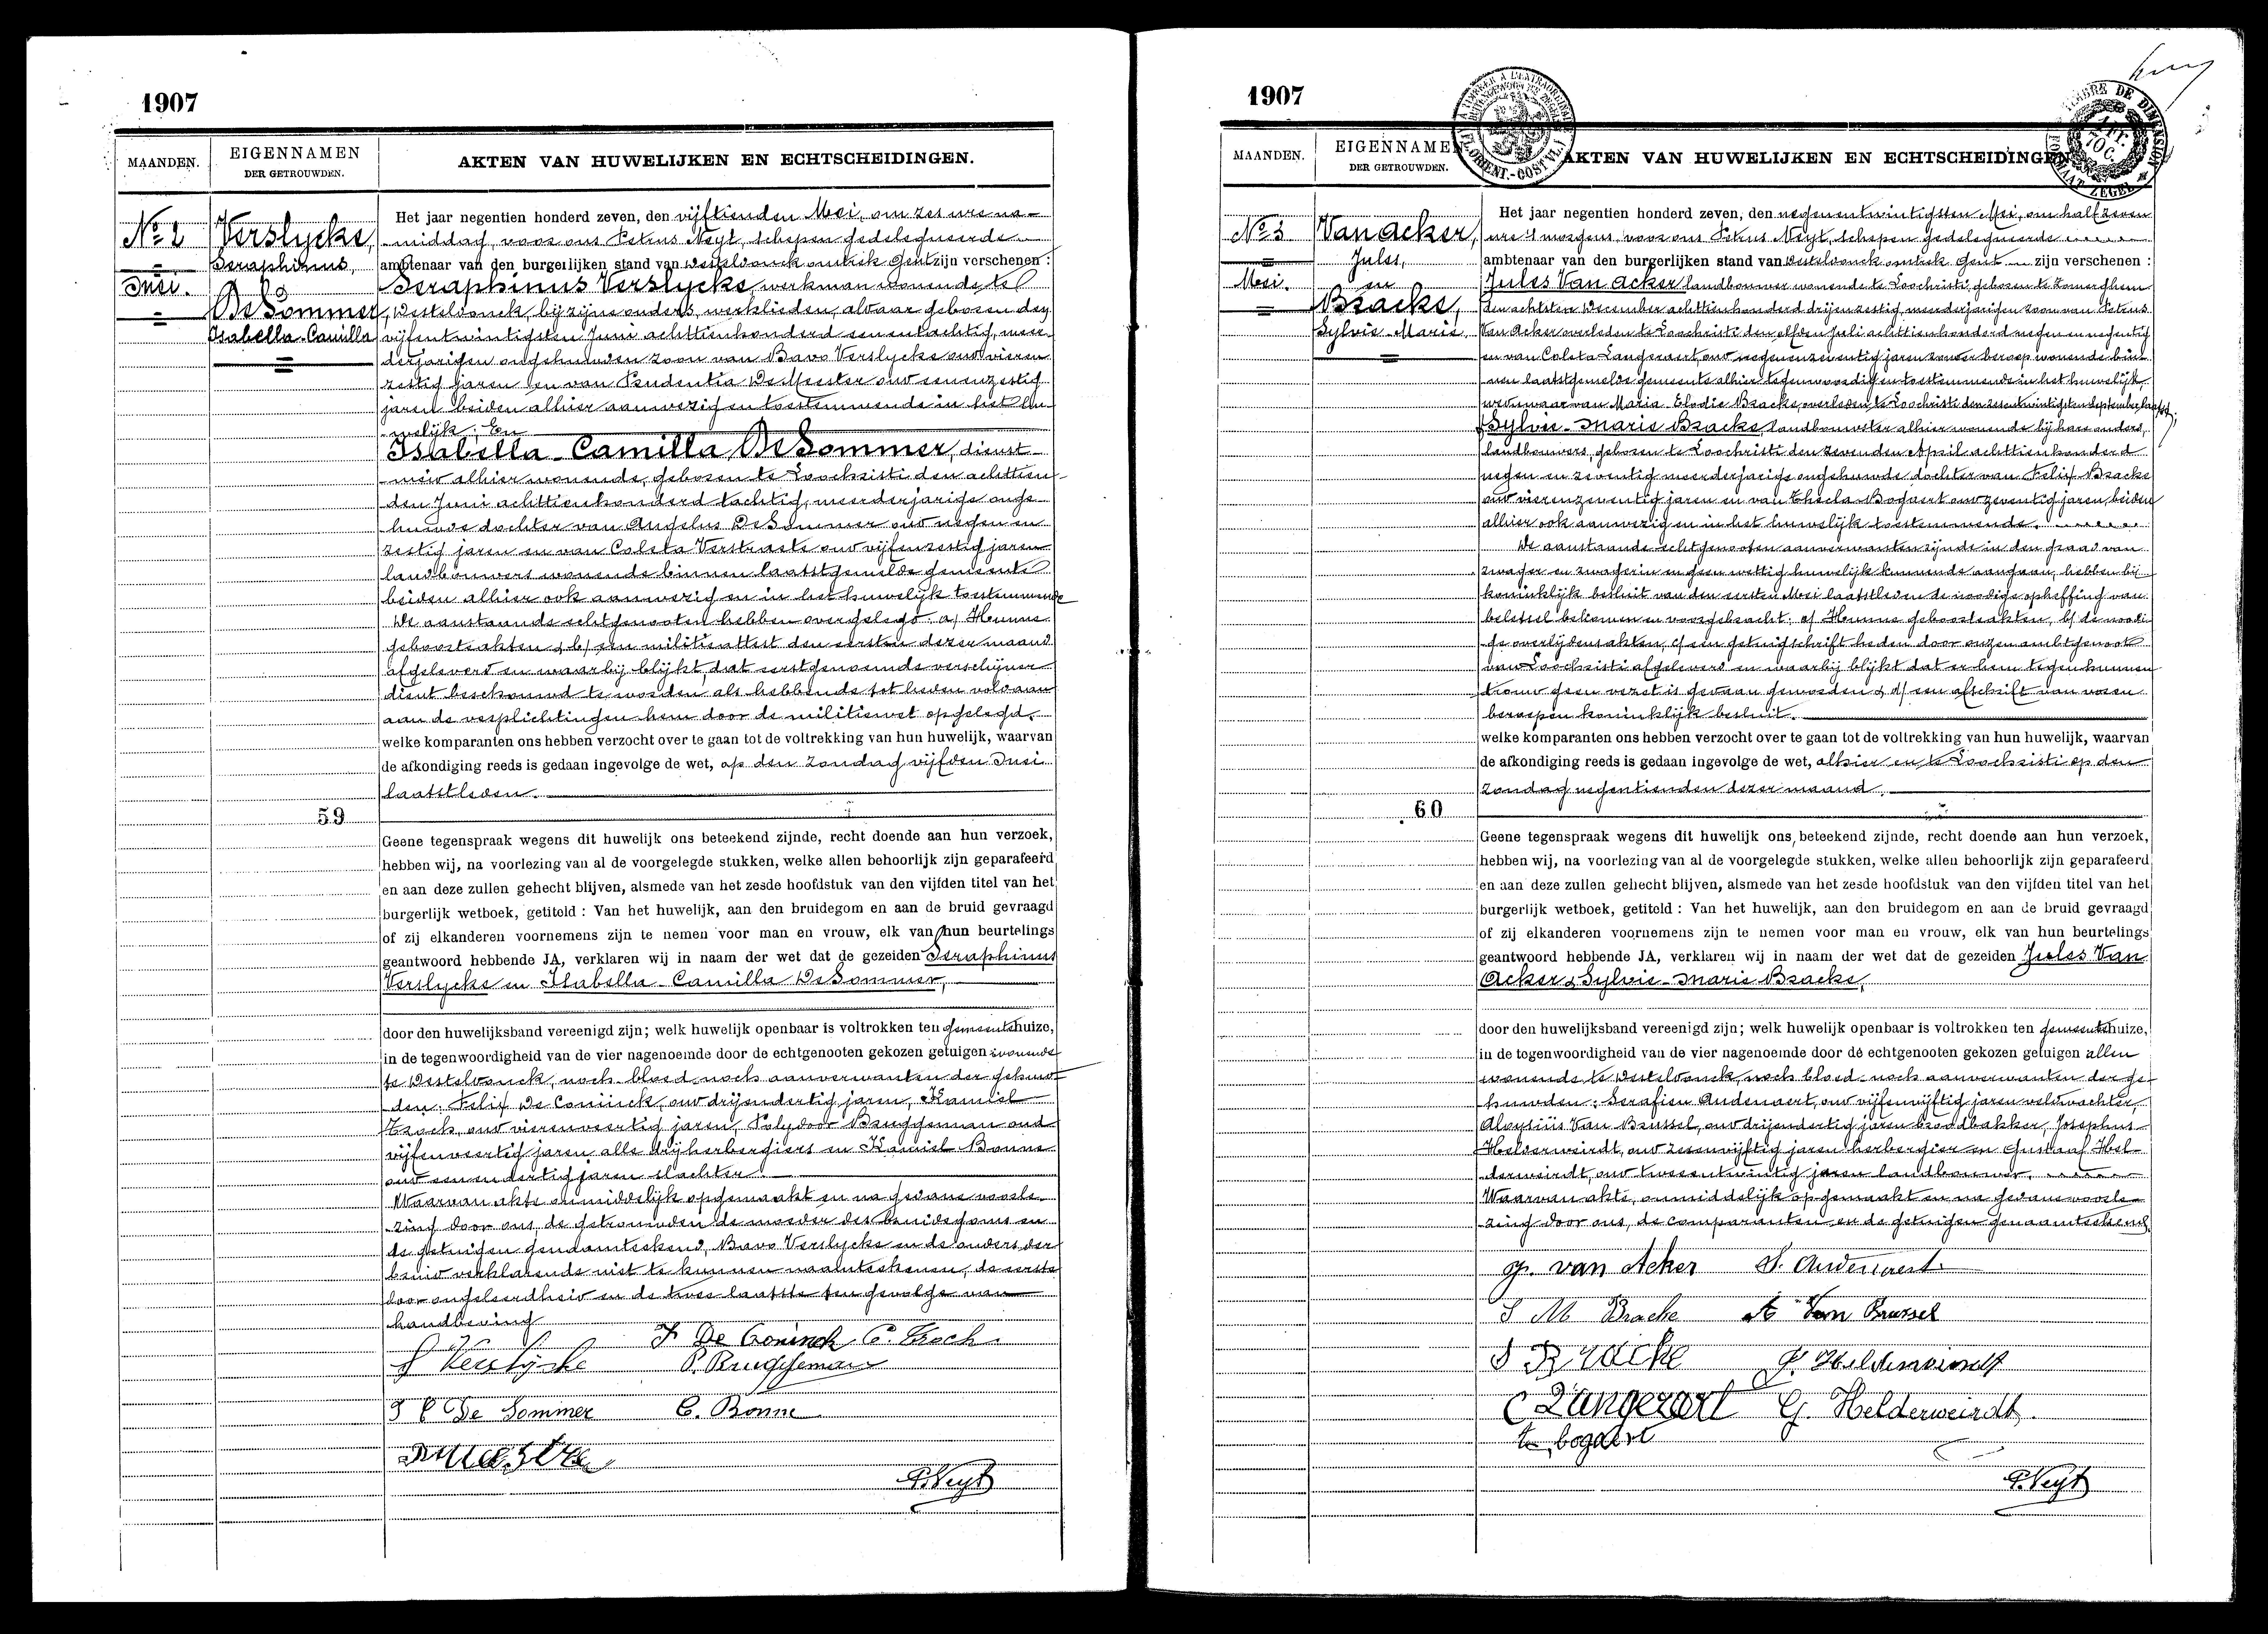 1907
MAANDEN.
EIGENNAMEN
DER GETROUWDEN.
AKTEN VAN HUWELIJKEN EN ECHTSCHEIDINGEN.
No 2
Mei.
Verslycke,
Seraphinus,
&
De Sommer,
Isabella-Camilla
Het jaar negentien honderd zeven, den vijftienden Mei, om zes ure na-
middag, voor ons Petrus Neyt, schepen gedelegueerde
ambtenaar van den burgerlijken stand van Desteldonck omtrek Gent zijn verschenen :
Seraphinus Verslycke, werkman wonende te
Desteldonck, bij zijne ouders, werklieden, alwaar geboren den
vijfentwintigsten Juni achttienhonderd eenentachtig, meer-
derjarigen ongehuwden zoon van Bavo Verslycke oud vieren
zestig jaren en van Prudentia De Meester oud eenenzestig
jaren beiden alhier aanwezig en toestemmende in het hu-
welijk; En
Isabella-Camilla De Sommer, dienst-
meid alhier wonende, geboren te Loochristi den achttien-
den Juni achttienhonderd tachtig, meerderjarige onge-
huwde dochter van Angelus De Sommer oud negen en
zestig jaren en van Coleta Verstraete oud vijfenzestig jaren
landbouwers wonende binnen laatstgemelde gemeente
beiden alhier ook aanwezig en in het huwelijk toestemmende
De aanstaande echtgenooten hebben overgelegd: a/ Hunne
geboorteakten & b/ een militieattest den eersten dezer maand
afgeleverd en waarbij blijkt, dat eerstgenoemde verschijner
dient beschouwd te worden als hebbende tot heden voldaan
aan de verplichtingen hem door de militiewet opgelegd.
welke komparanten ons hebben verzocht over te gaan tot de voltrekking van hun huwelijk, waarvan
de afkondiging reeds is gedaan ingevolge de wet, op den Zondag vijfden Mei
laatstleden.
59
Geene tegenspraak wegens dit huwelijk ons beteekend zijnde, recht doende aan hun verzoek,
hebben wij, na voorlezing van al de voorgelegde stukken, welke allen behoorlijk zijn geparafeerd
en aan deze zullen gehecht blijven, alsmede van het zesde hoofdstuk van den vijfden titel van het
burgerlijk wetboek, getiteld : Van het huwelijk, aan den bruidegom en aan de bruid gevraagd
of zij elkanderen voornemens zijn te nemen voor man en vrouw, elk van hun beurtelings
geantwoord hebbende JA, verklaren wij in naam der wet dat de gezeiden Seraphinus
Verslycke en Isabella-Camilla De Sommer,
door den huwelijksband vereenigd zijn; welk huwelijk openbaar is voltrokken ten gemeentehuize,
in de tegenwoordigheid van de vier nagenoemde door de echtgenooten gekozen getuigen wonende
te Desteldonck, noch bloed noch aanverwanten der gehuw-
den: Felix De Coninck, oud drijendertig jaren, Kamiel
oud vierenveertig jaren, Polydoor Bruggeman oud
vijfenveertig jaren, alle drij herbergiers en Kamiel Bonne
oud eenendertig jaren slachter.
Waarvan akte onmiddelijk opgemaakt en na gedane voorle-
zing door ons, de getrouwden de moeder des bruidegoms en
de getuigen genaamteekend, Bavo Verslycke en de ouders der
bruid verklarende niet te kunnen naamteekenen, de eerste
door ongeleerdheid en de twee laatste ten gevolge van
handbeving
S Verslycke
F De Coninck
P. Bruggeman
I C De Sommer
C. Bonne
P. Neyt
1907
MAANDEN.
EIGENNAMEN
DER GETROUWDEN.
AKTEN VAN HUWELIJKEN EN ECHTSCHEIDINGEN.
No 3
Mei.
Van Acker,
Jules,
en
Bracke,
Sylvie-Marie.
Het jaar negentien honderd zeven, den negenentwintigsten Mei, om half zeven
ure 's morgens voor ons Petrus Neyt, schepen gedelegueerde
ambtenaar van den burgerlijken stand van Desteldonck omtrek Gent zijn verschenen :
Jules Van Acker landbouwer wonende te Loochristi, geboren te Zomerghem
den achtsten December achttienhonderd drijenzestig, meerderjarigen zoon van Petrus
Van Acker overleden te Loochristi den elfden Juli achttienhonderd negen en negentig
en van Coleta Langeraert oud negenenzeventig jaren zonder beroep wonende bin-
nen laatstgemelde gemeente alhier tegenwoordig en toestemmende in het huwelijk
weduwaar van Maria-Elodie Bracke, overleden te Loochristi den zesentwintigsten September laatst;
& Sylvie-Marie Bracke, landbouwster alhier wonende bij hare ouders,
landbouwers, geboren te Loochristi den zevenden April achttienhonderd
negen en zeventig meerderjarige ongehuwde dochter van Felix Bracke
oud vierenzeventig jaren en van Thecla Bogaert oud zeventig jaren, beiden
alhier ook aanwezig en in het huwelijk toestemmende.
De aanstaande echtgenooten aanverwanten zijnde in den graad van
zwager en zwagerin en geen wettig huwelijk kunnende aangaan, hebben bij
koninklijk besluit van den eersten Mei laatstleden de noodige opheffing van
beletsel bekomen en voorgebracht: a/ Hunne geboorteakten, b/ de noodi-
ge overlijdensakten, c/ een getuigschrift heden door onzen ambtgenoot
van Loochristi afgeleverd en waarbij blijkt dat er hem tegen hunnen
trouw geen verzet is gedaan geworden & d/ een afschrift van voren
beroepen koninklijk besluit.
welke komparanten ons hebben verzocht over te gaan tot de voltrekking van hun huwelijk, waarvan
de afkondiging reeds is gedaan ingevolge de wet, alhier en te Loochristi op den
Zondag negentienden dezer maand.
60
Geene tegenspraak wegens dit huwelijk ons beteekend zijnde, recht doende aan hun verzoek,
hebben wij, na voorlezing van al de voorgelegde stukken, welke allen behoorlijk zijn geparafeerd
en aan deze zullen gehecht blijven, alsmede van het zesde hoofdstuk van den vijfden titel van het
burgerlijk wetboek, getiteld : Van het huwelijk, aan den bruidegom en aan de bruid gevraagd
of zij elkanderen voornemens zijn te nemen voor man en vrouw, elk van hun beurtelings
geantwoord hebbende JA, verklaren wij in naam der wet dat de gezeiden Jules Van
Acker & Sylvie-Marie Bracke,
door den huwelijksband vereenigd zijn; welk huwelijk openbaar is voltrokken ten gemeentehuize,
in de tegenwoordigheid van de vier nagenoemde door de echtgenooten gekozen getuigen allen
wonende te Desteldonck, noch bloed noch aanverwanten der ge-
huwden: Serafien Audenaert, oud vijfenvijftig jaren veldwachter,
Aloysius Van Brussel, oud drijendertig jaren broodbakker, Josephus
Helderweirdt, oud zessenvijftig jaren herbergier en Gustaaf Hel-
derweirdt, oud tweeentwintig jaren landbouwer.
Waarvan akte, onmiddelijk opgemaakt en na gedane voorle-
zing door ons, de comparanten en de getuigen genaamteekend
J. van Acker
S. Audenaert
S M Bracke
A Van Brussel
Bracke
J. Helderweirdt
C Langeraert
G. Helderweirdt.
bogaert
P. Neyt